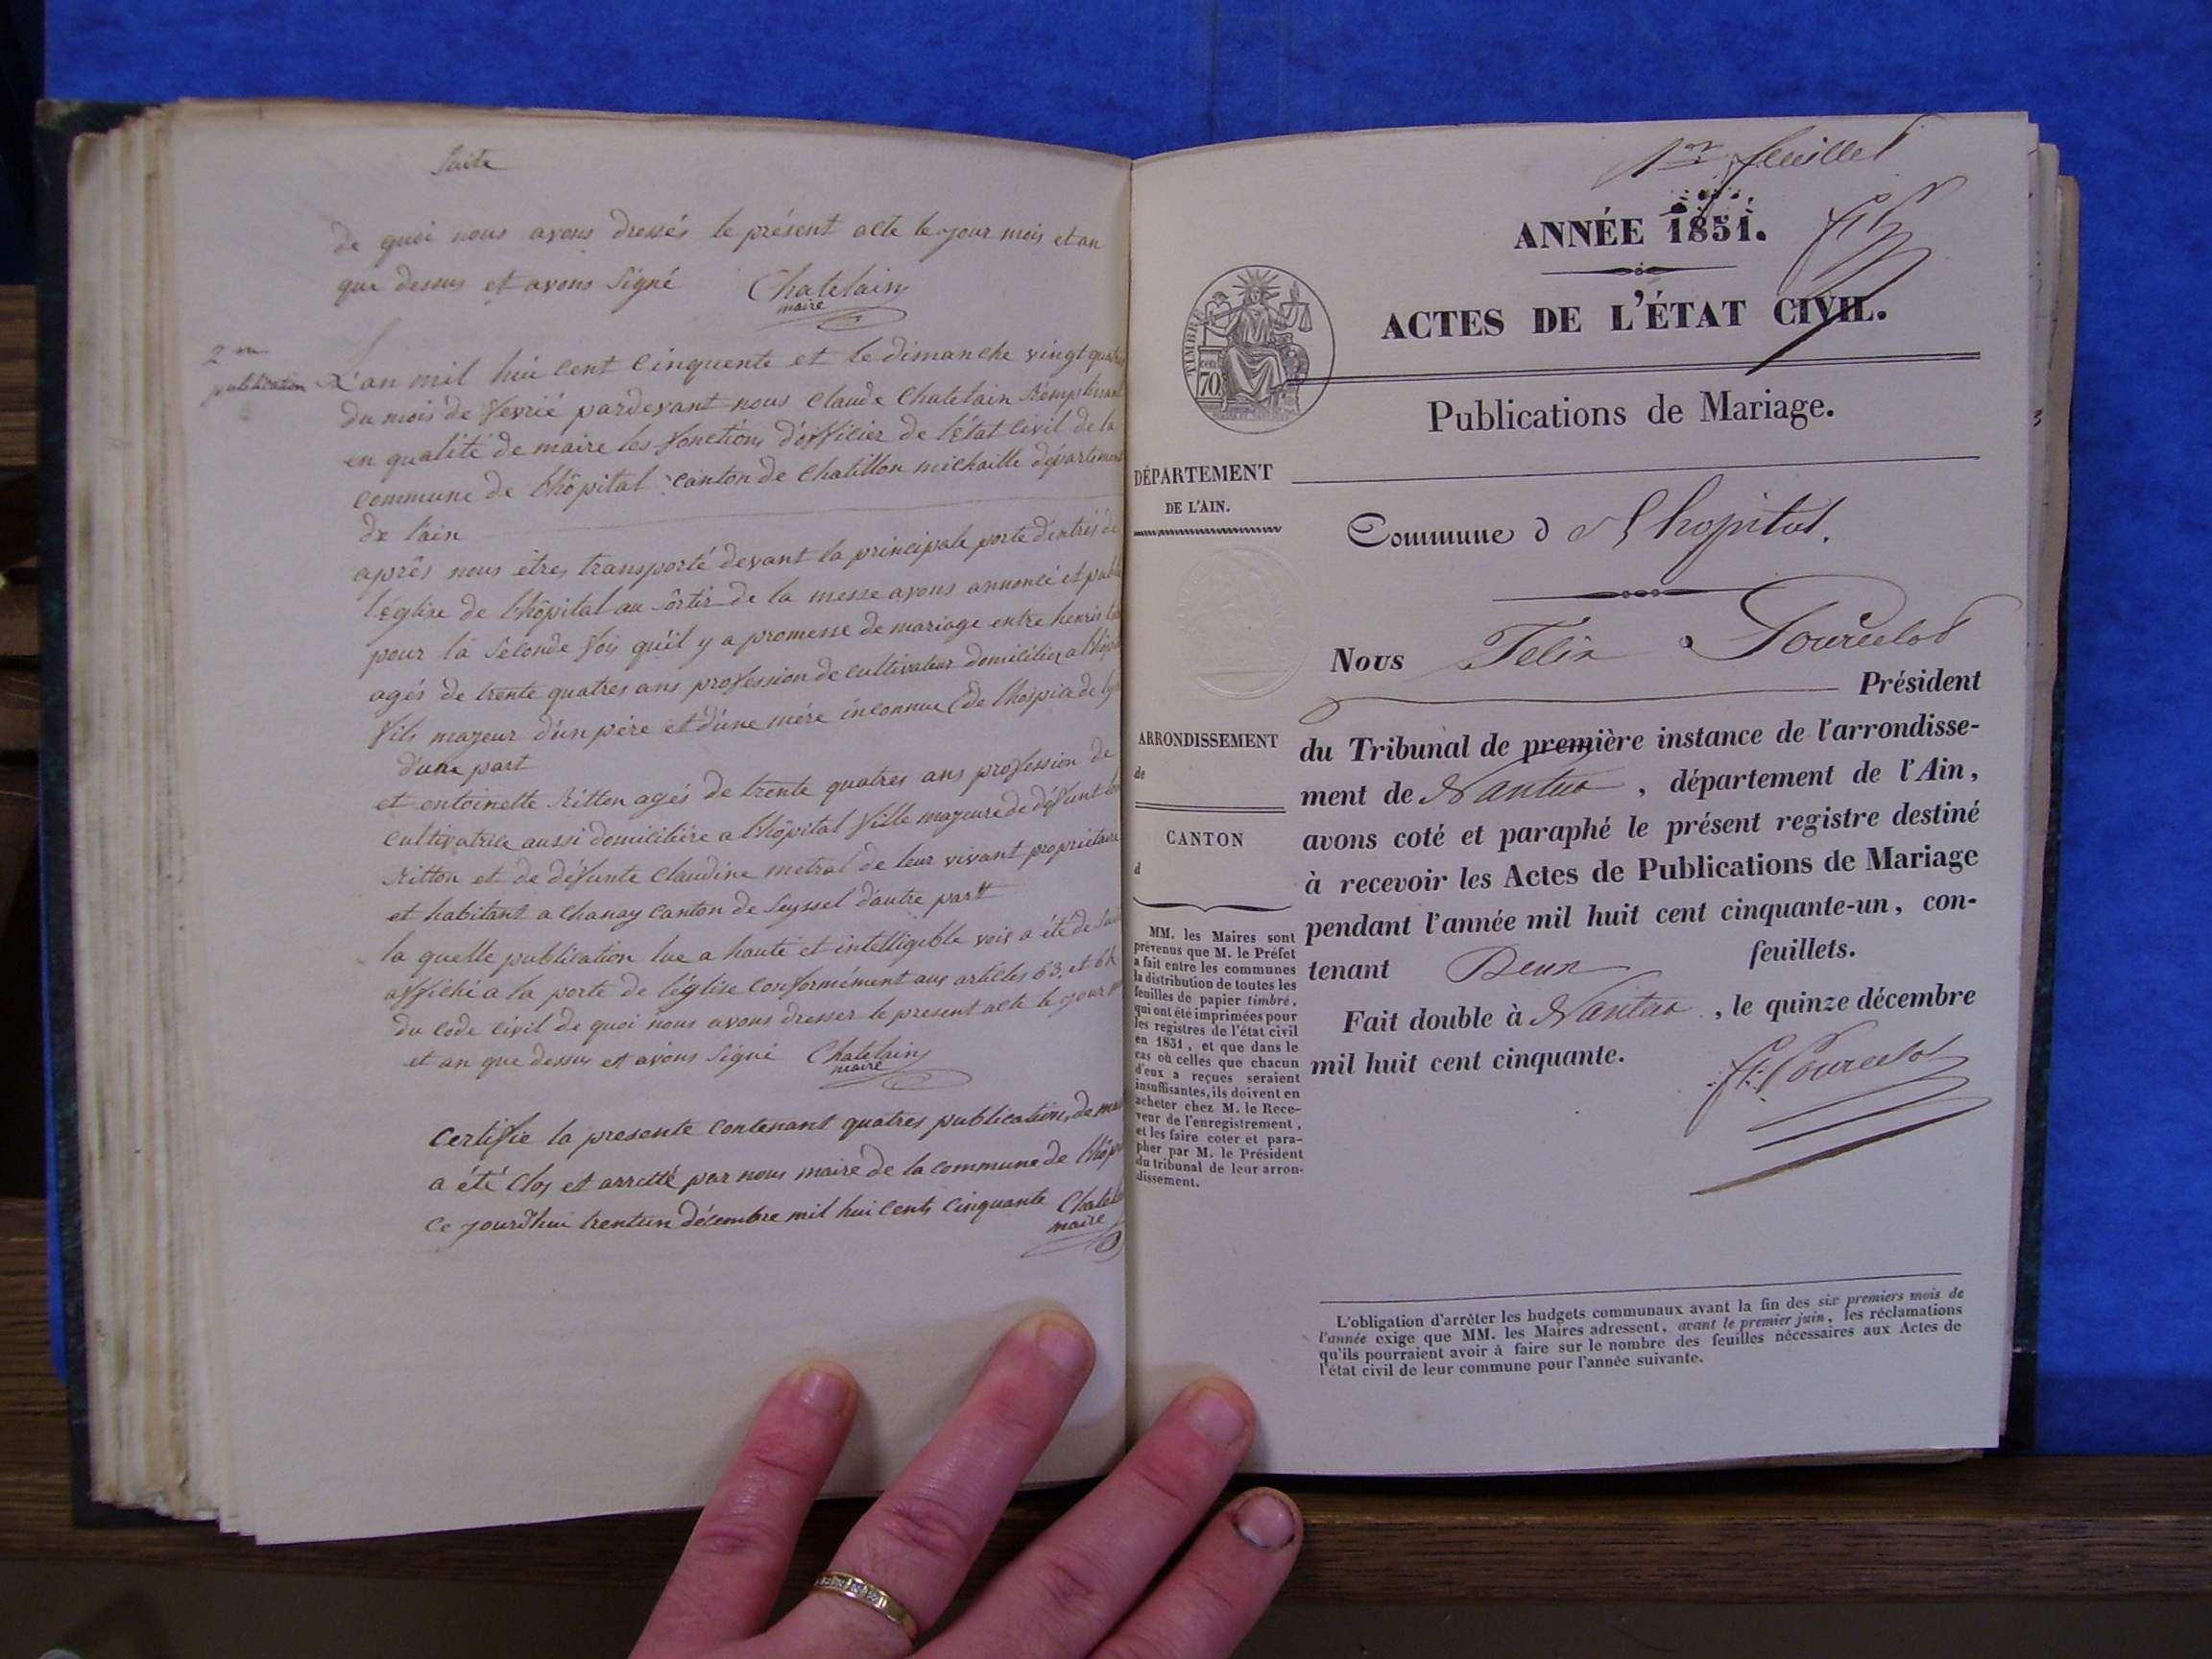 Suite
de quoi nous avons dressés le présent acte le jour mois et an
que dessus et avons Signé Chatelain
maire
2me
publication
L'an mil hui cent Cinquente et le dimanche vingt
du mois de fevrié pardevant nous Claude Chatelain Remplissant
en qualité de maire les fonctions d'officier de l'état Civil de la
commune de l'hôpital canton de Chatillon michaille département
de l'ain
après nous êtres transporté devant la principale porte d'entrés de
l'église de l'hôpital au sortir de la messe avons annoncé et
pour la Seconde fois qu'il y a promesse de mariage entre henris
agés de trente quatres ans profession de cultivateur domicilier a
fils mayeur d'un père et d'une mère inconnue (de lhospice de
d'une part
et entoinette Ritton agés de trente quatres ans profession de
Cultivatrice aussi domicilière a l'hôpital fille mayeure de défunt
Ritton et de défunte Claudine metral de leur vivant propriétaire
et habitant a Chanay Canton de Seyssel d'autre part
la quelle publication lue a haute et intelligible voix a été de
affiché a la porte de l'église Conformément aux articles 63, et 64
du code civil de quoi nous avons dresser le présent acte le jour
et an que dessus et avons Signé Chatelain
maire
Certifie la presente Contenant quatres publication, de
a été Clos et arretté par nous maire de la commune de
Ce jourd'hui trentun décembre mil hui cents Cinquante
maire
1er feuillet
ANNÉE 1851.
ACTES DE L'ÉTAT CIVIL.
TIMBRE
70
Publications de Mariage.
DÉPARTEMENT
DE L'AIN.
Commune d Lhopital.
Nous Felix Pourcelot
Président
ARRONDISSEMENT
de
CANTON
d
du Tribunal de première instance de l'arrondisse-
ment de Nantua, département de l'Ain,
avons coté et paraphé le présent registre destiné
à recevoir les Actes de Publications de Mariage
pendant l'année mil huit cent cinquante-un, con-
tenant Deux feuillets.
Fait double à Nantua, le quinze décembre
mil huit cent cinquante.
F. Pourcelot
MM. les Maires sont
prévenus que M. le Préfet
a fait entre les communes
la distribution de toutes les
feuilles de papier timbré,
qui ont été imprimées pour
les registres de l'état civil
en 1851, et que dans le
cas où celles que chacun
d'eux a reçues seraient
insuffisantes, ils doivent en
acheter chez M. le Rece-
veur de l'enregistrement,
et les faire coter et para-
pher par M. le Président
du tribunal de leur arron-
dissement.
L'obligation d'arrêter les budgets communaux avant la fin des six premiers mois de
l'année exige que MM. les Maires adressent, avant le premier juin, les réclamations
qu'ils pourraient avoir à faire sur le nombre des feuilles nécessaires aux Actes de
l'état civil de leur commune pour l'année suivante.